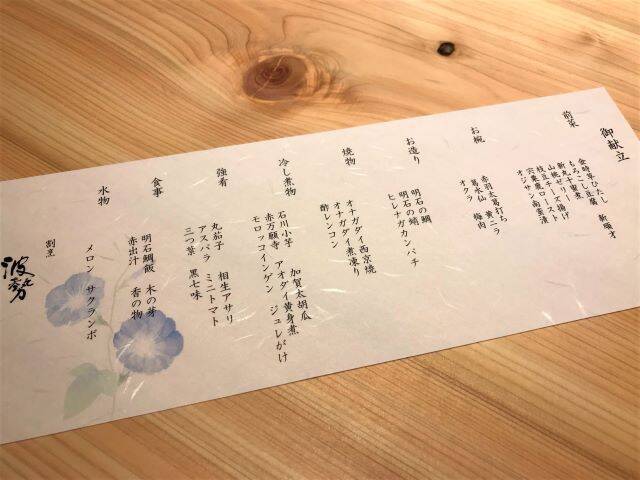 御献立
前菜
金時草ひたし　新順才
もろこし豆腐
新丸十蜜煮
山桃ゼリー
枝豆チーズ揚げ
穴子八幡ロースト
オジサン南蛮漬
お椀
赤羽太葛打ち
葛水仙　黄ニラ
オクラ　梅肉
お造り
明石の鯛
明石の鱧
ヒレナガカンパチ
焼物
オナガダイ西京焼
オナガダイ煮凍り
酢レンコン
冷し煮物
石川小芋　加賀太胡瓜
赤万願寺　アオダイ黄身煮
モロッコインゲン　ジュレがけ
強肴
丸茄子　相生アサリ
アスパラ　ミニトマト
三つ葉　黒七味
食事
明石鯛飯　木の芽
赤出汁　香の物
水物
メロン　サクランボ
割烹
波勢